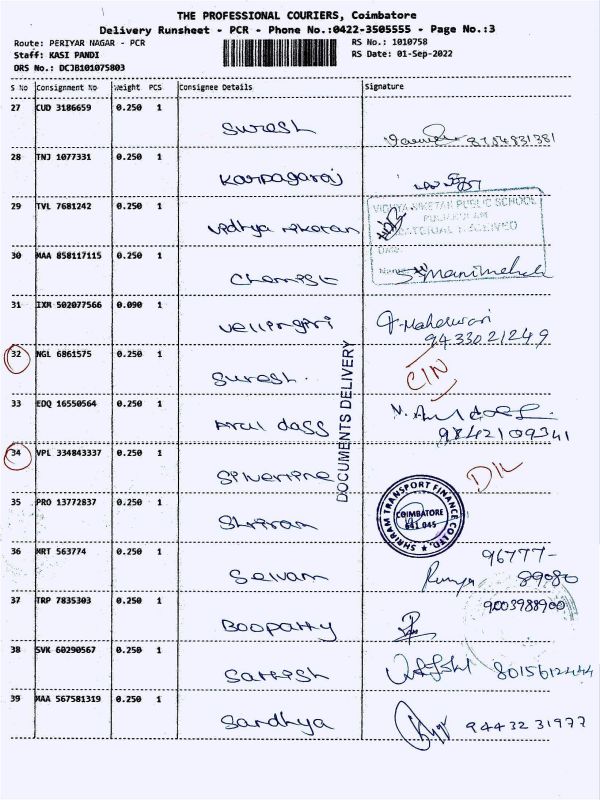 THE PROFESSIONAL COURIERS, Coimbatore
Delivery Runsheet - PCR - Phone No.:0422-3505555 - Page No.:3
Route: PERIYAR NAGAR - PCR
RS No.: 1010758
Staff: KASI PANDI
RS Date: 01-Sep-2022
DRS No.: DCJB101075803
S No Consignment No Weight PCS Consignee Details Signature
27 CUD 3186659 0.250 1
Suresh 8754831381
28 TNJ 1077331 0.250 1
Karpagaraj
29 TVL 7681242 0.250 1
VIDHYA NIKETAN PUBLIC SCHOOL
Vidhya niketan
MATERIAL RECEIVED
Date
30 MAA 858117115 0.250 1
Name
Chemist S. Manimehala
31 IXM 502077566 0.090 1
Vellingiri P. Maheswari
9433021249
32 NGL 6861575 0.250 1
Suresh. CIN
DOCUMENTS DELIVERY
33 EDQ 16550564 0.250 1
Arul dass
9842109341
34 VPL 334843337 0.250 1
Silverline DIL
35 PRO 13772837 0.250 1
Shriram
SHRIRAM TRANSPORT FINANCE CO LTD.
COIMBATORE
641 045
36 MRT 563774 0.250 1
96777-
Selvam Ramya 89080
37 TRP 7835303 0.250 1
9003988900
Boopathy
38 SVK 60290567 0.250 1
Sathish 8015612444
39 MAA 567581319 0.250 1
Sandhya 9443231977